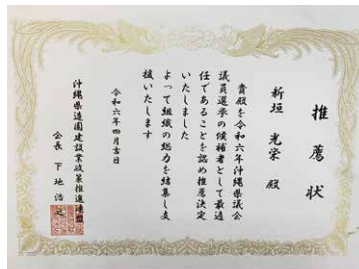 推薦状
新垣 光栄 殿
貴殿を令和六年沖縄県議会
議員選挙の候補者として最適
任であることを認め推薦決定
いたしました
よって組織の総力を結集し支
援いたします
令和六年四月吉日
沖縄県造園建設業政策推進連盟
会長 下地 浩之